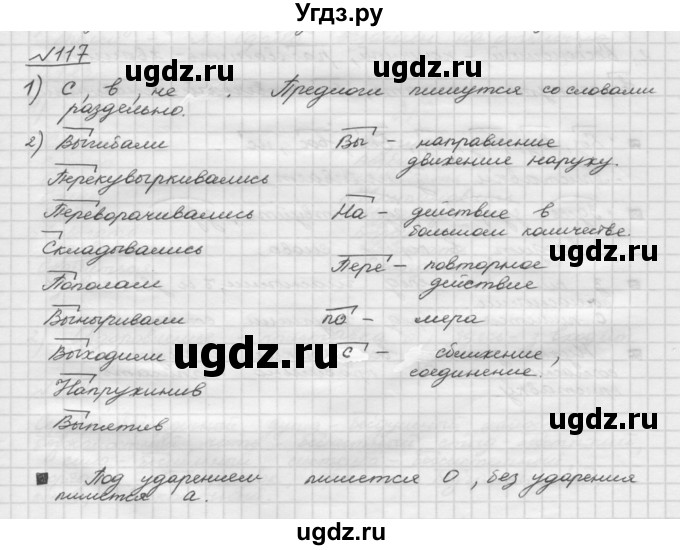 Угдз.ру
№117
ugdz.ru
1) С, в, не . Предлоги пишутся со словами
раздельно.
ugdz.ru
2) Выгибали Вы - направление
движение наружу.
Перекувыркивались
Переворачивались На - действие в
большом количестве.
ugdz.ru
Складывались
Пере - повторное
действие
Пополам
Выныривали по - мера
Выходили с - сближение,
соединение.
ugdz.ru
Напружинив
Выпятив
ugdz.ru
Под ударением пишется О, без ударения
пишется а.
ugdz.ru